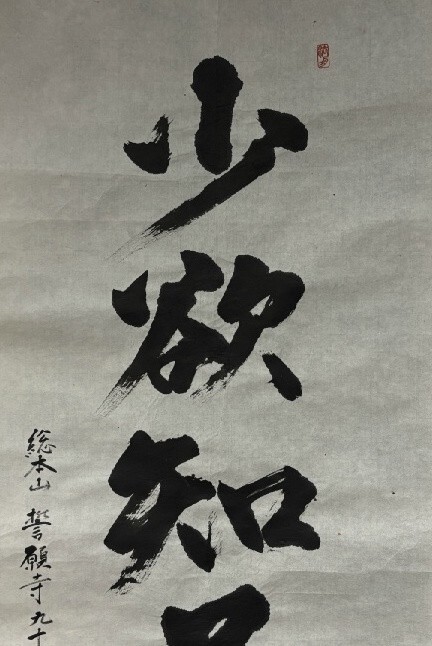 少欲知
総本山 誓願寺 九十